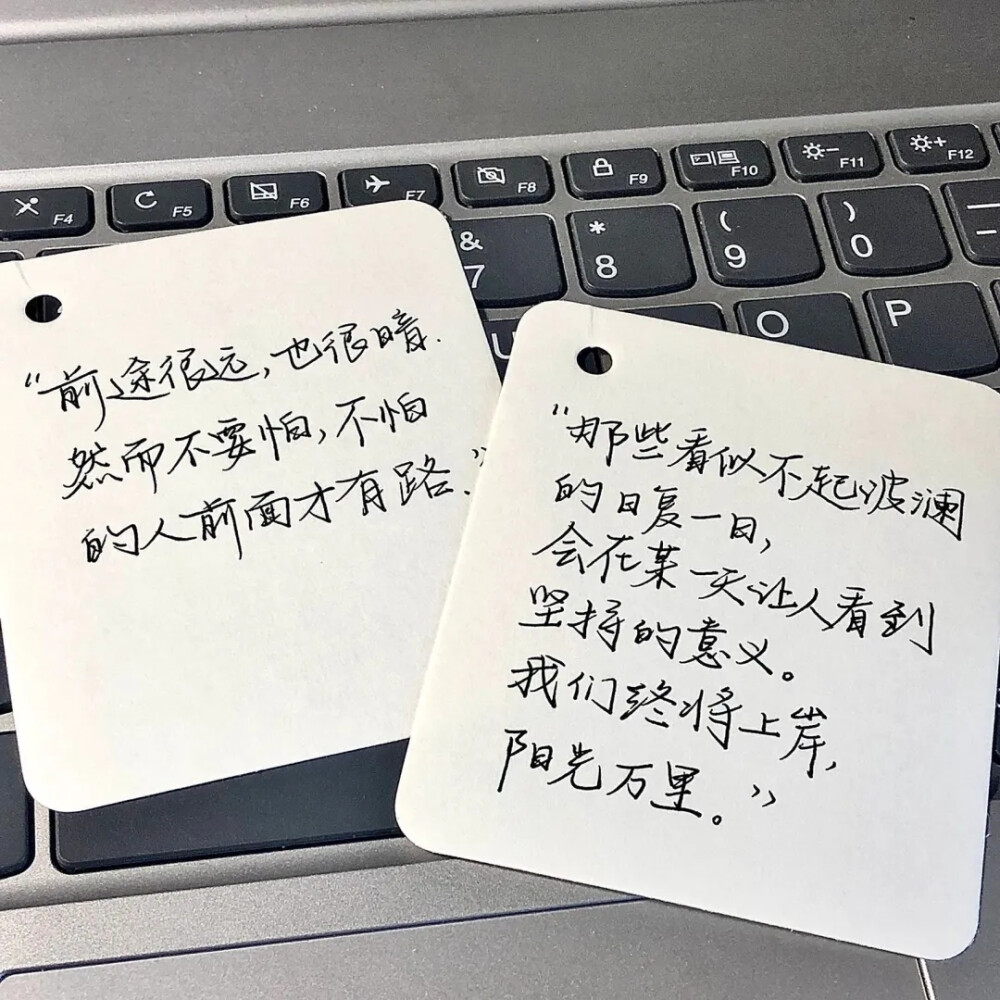 F4
F5
F6
F7
F8
F9
F10
F11
F12
&
7
*
8
(
9
)
0
U
O
P
“前途很远,也很暗.
然而不要怕,不怕
的人前面才有路.”
“那些看似不起波澜
的日复一日,
会在某一天让人看到
坚持的意义。
我们终将上岸,
阳光万里。”